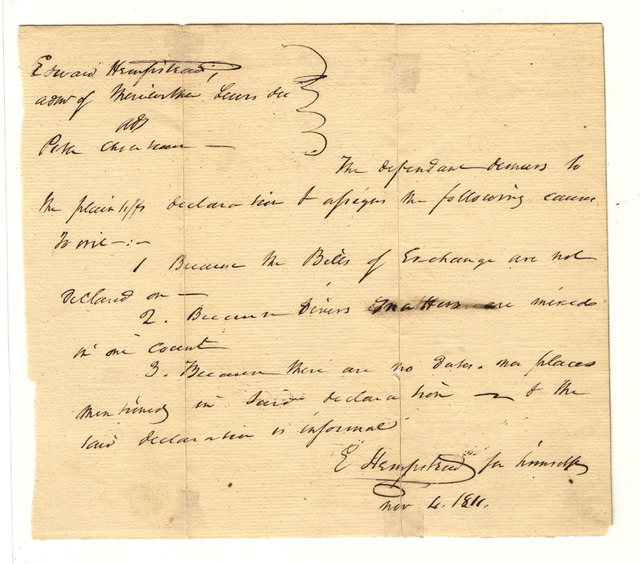 Edward Hempstead,
admr of Meriwether Lewis dec
ads
Peter Chouteau —
The defendant demurs to
the plaintiffs declaration & assigns the following causes
To wit —:—
1 Because the Bills of Exchange are not
declared on —
2. Because divers matters are mixed
in one count
3. Because there are no dates nor places
mentioned in said declaration — & the
said declaration is informal
E Hempstead for himself
nov 4. 1811.